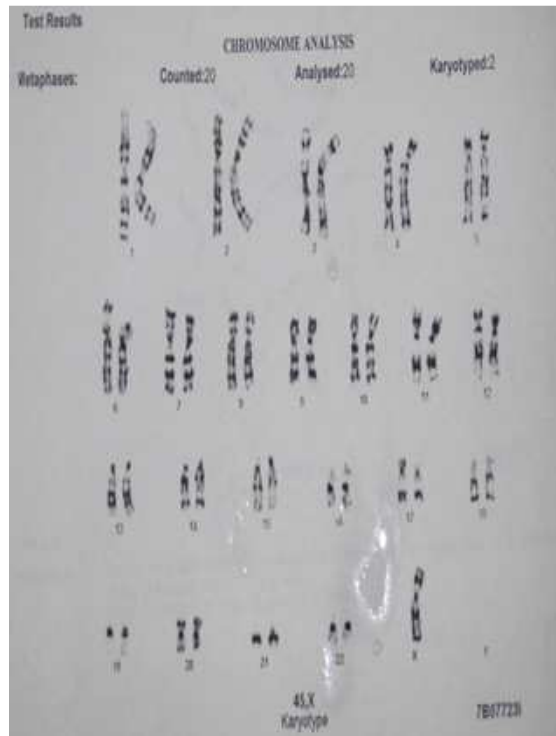 Test Results
CHROMOSOME ANALYSIS
Metaphases: Counted:20 Analysed:20 Karyotyped:2
1 2 3 4 5
6 7 8 9 10 11 12
13 14 15 16 17 18
19 20 21 22 X Y
45,X
Karyotype